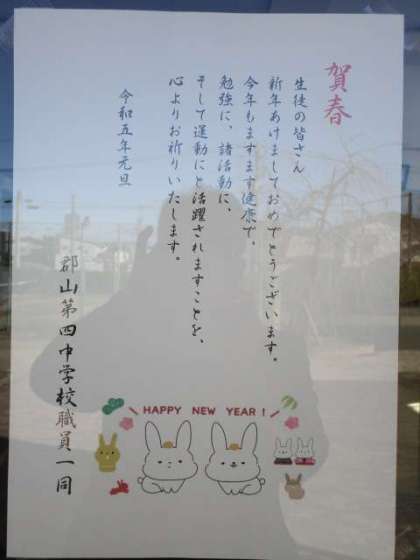 賀春
生徒の皆さん
新年あけましておめでとうございます。
今年もますます健康で、
勉強に、諸活動に、
そして運動にと活躍されますことを、
心よりお祈りいたします。
令和五年元旦
郡山第四中学校職員一同
HAPPY NEW YEAR!